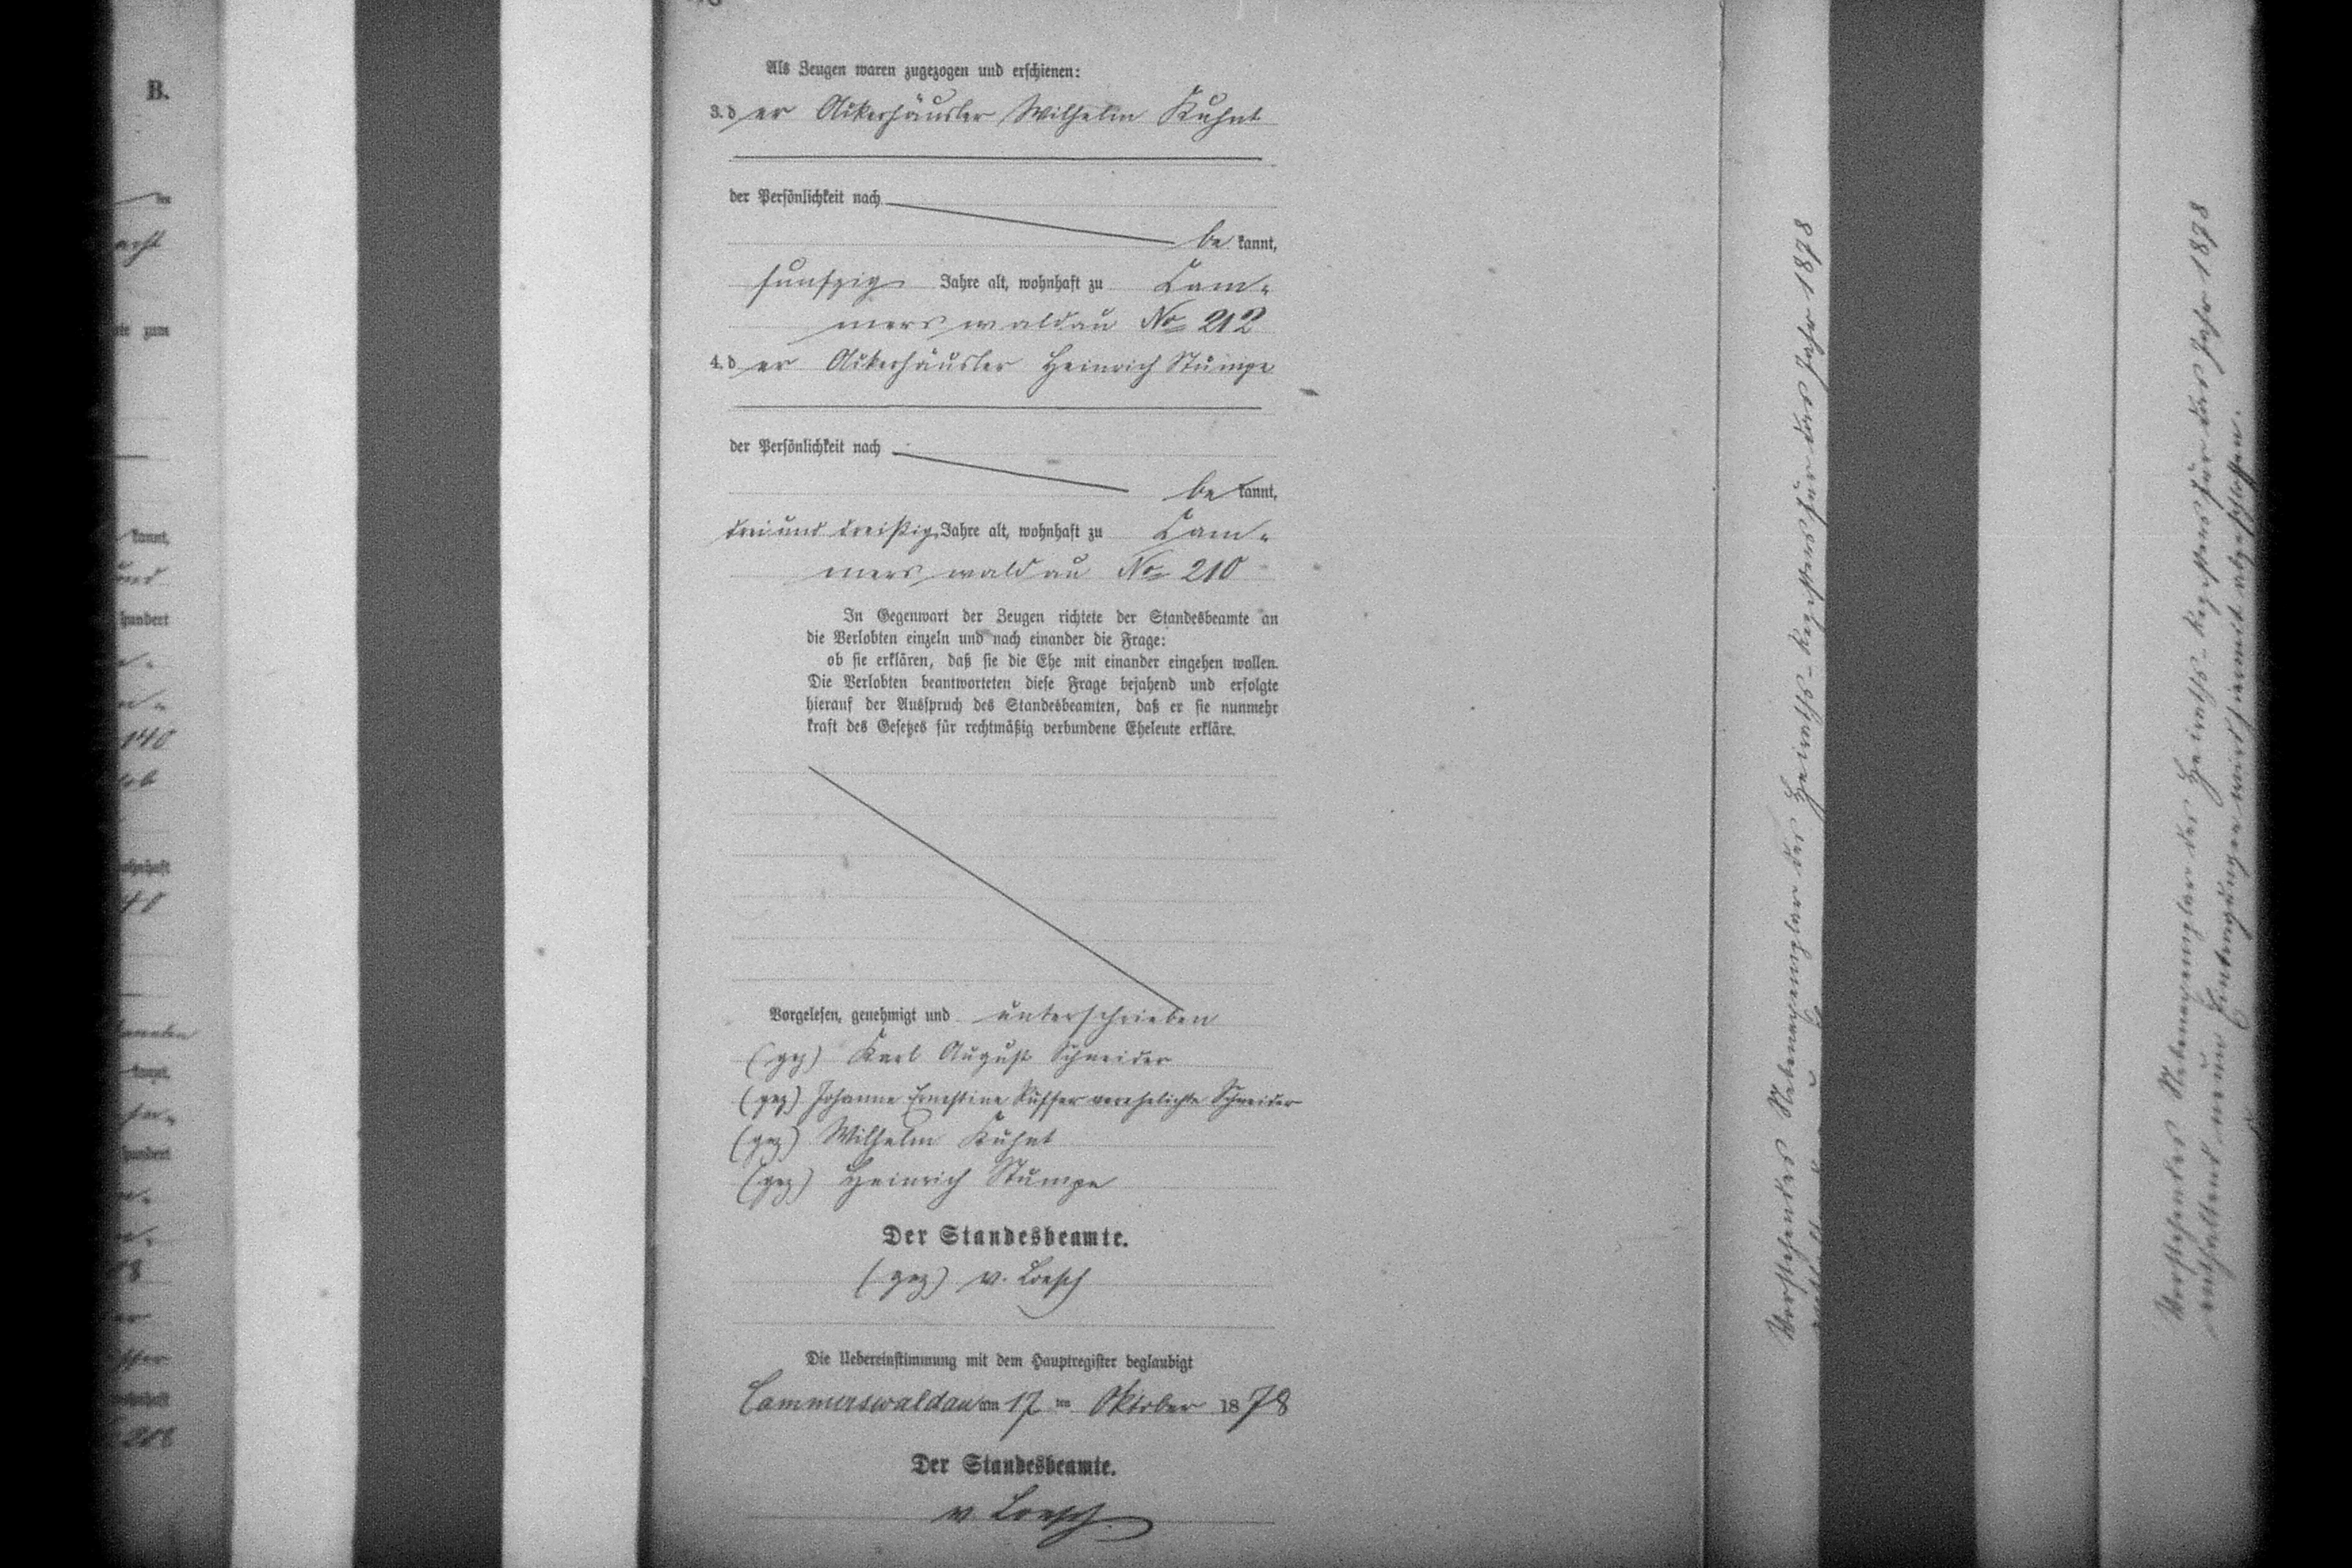 B.
acht
zum
kannt,
und
hundert
140
hundert
Als Zeugen waren zugezogen und erschienen:
3. der Ackerhäusler Wilhelm Kuhnt
der Persönlichkeit nach
be kannt,
funfzig Jahre alt, wohnhaft zu Cam-
merswaldau No 212
4. der Ackerhäusler Heinrich Stumpe
der Persönlichkeit nach
be kannt,
drei und dreißig Jahre alt, wohnhaft zu Cam-
merswaldau No 210
In Gegenwart der Zeugen richtete der Standesbeamte an
die Verlobten einzeln und nach einander die Frage:
ob sie erklären, daß sie die Ehe mit einander eingehen wollen.
Die Verlobten beantworteten diese Frage bejahend und erfolgte
hierauf der Ausspruch des Standesbeamten, daß er sie nunmehr
kraft des Gesetzes für rechtmäßig verbundene Eheleute erkläre.
Vorgelesen, genehmigt und unterschrieben
(gez) Karl August Schneider
(gez) Johanne Ernestine Küffer verehelichte Schneider
(gez) Wilhelm Kuhnt
(gez) Heinrich Stumpe
Der Standesbeamte.
(gez) v. Loesch
Die Uebereinstimmung mit dem Hauptregister beglaubigt
Cammerswaldau am 17 ten Oktober 1878
Der Standesbeamte.
v Loesch
Vorstehendes Nebenexemplar des Heiraths-Registers für das Jahr 1878
Vorstehendes Nebenexemplar des Heiraths-Registers für das Jahr 1878
enthaltend neun Eintragungen wird hiermit abgeschlossen.